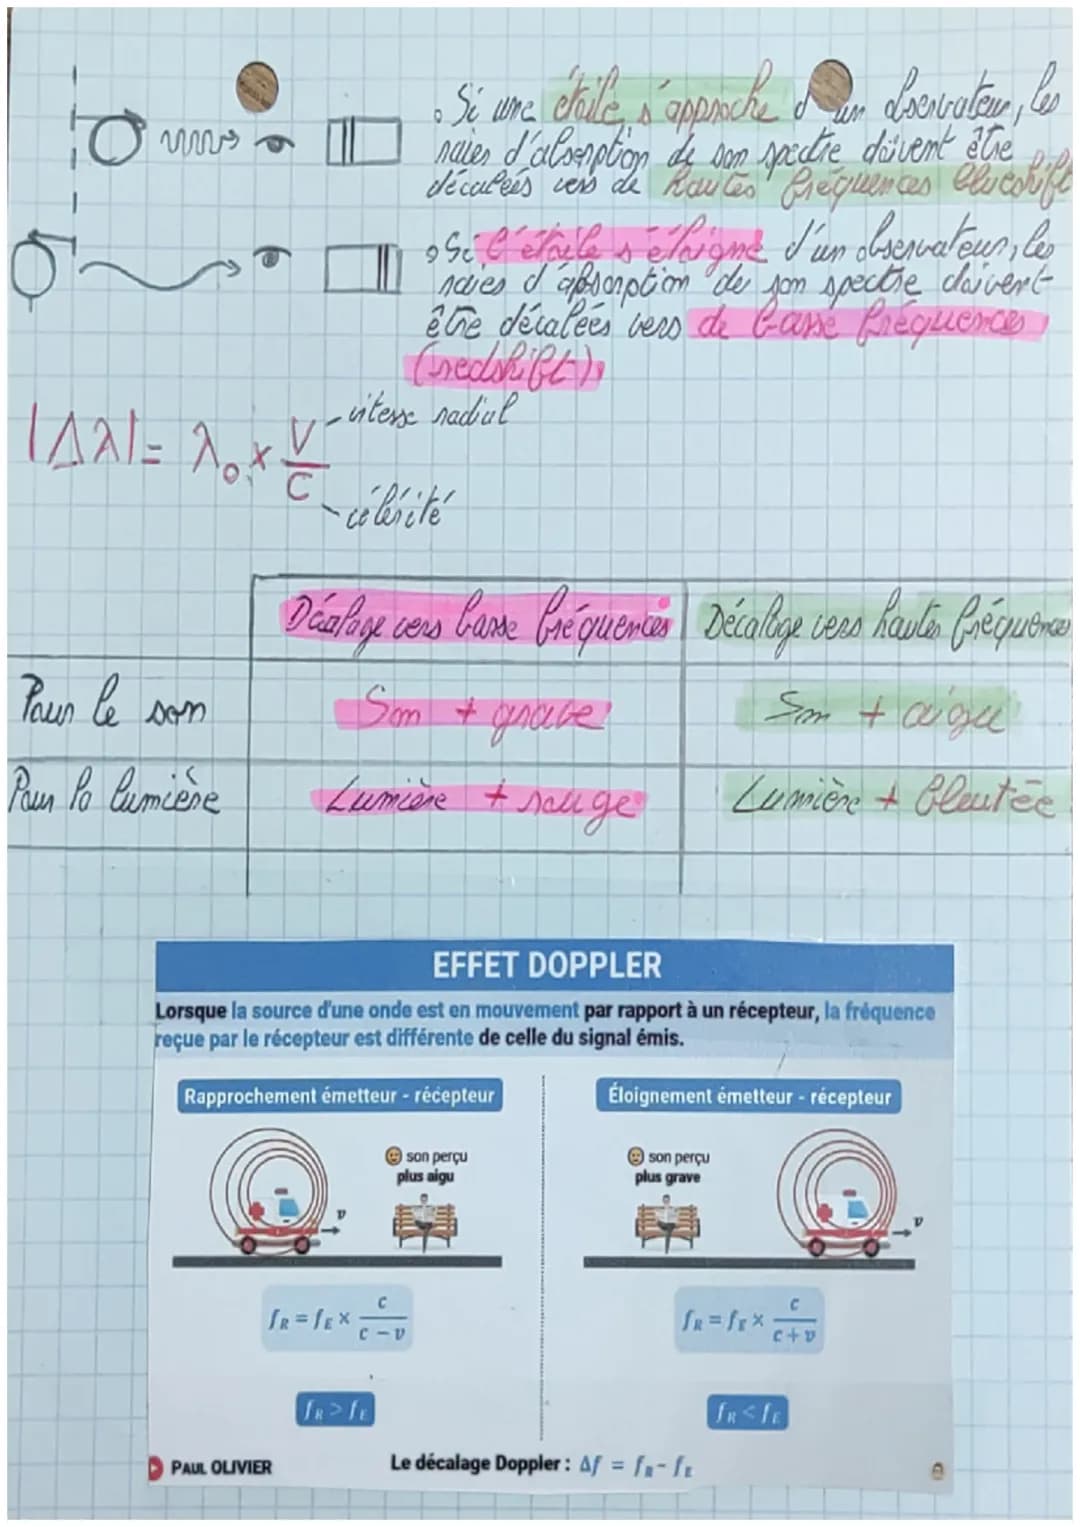 • Si une étoile s'approche d'un observateur, les
raies d'absorption de son spectre doivent être
décalées vers de hautes fréquences blueshift
• Si l'étoile s'éloigne d'un observateur, les
raies d'absorption de son spectre doivent
être décalées vers de basse fréquences
(redshift).
|Δλ| = λ₀ × V/C
vitesse radial
célérité
Décalage vers basse fréquences
Décalage vers hautes fréquences
Pour le son
Son + grave
Son + aigu
Pour la lumière
Lumière + rouge
Lumière + bleutée
EFFET DOPPLER
Lorsque la source d'une onde est en mouvement par rapport à un récepteur, la fréquence
reçue par le récepteur est différente de celle du signal émis.
Rapprochement émetteur - récepteur
son perçu
plus aigu
v
f_R = f_E × c/(c - v)
f_R > f_E
Éloignement émetteur - récepteur
son perçu
plus grave
v
f_R = f_E × c/(c + v)
f_R < f_E
PAUL OLIVIER
Le décalage Doppler : Δf = f_R - f_E